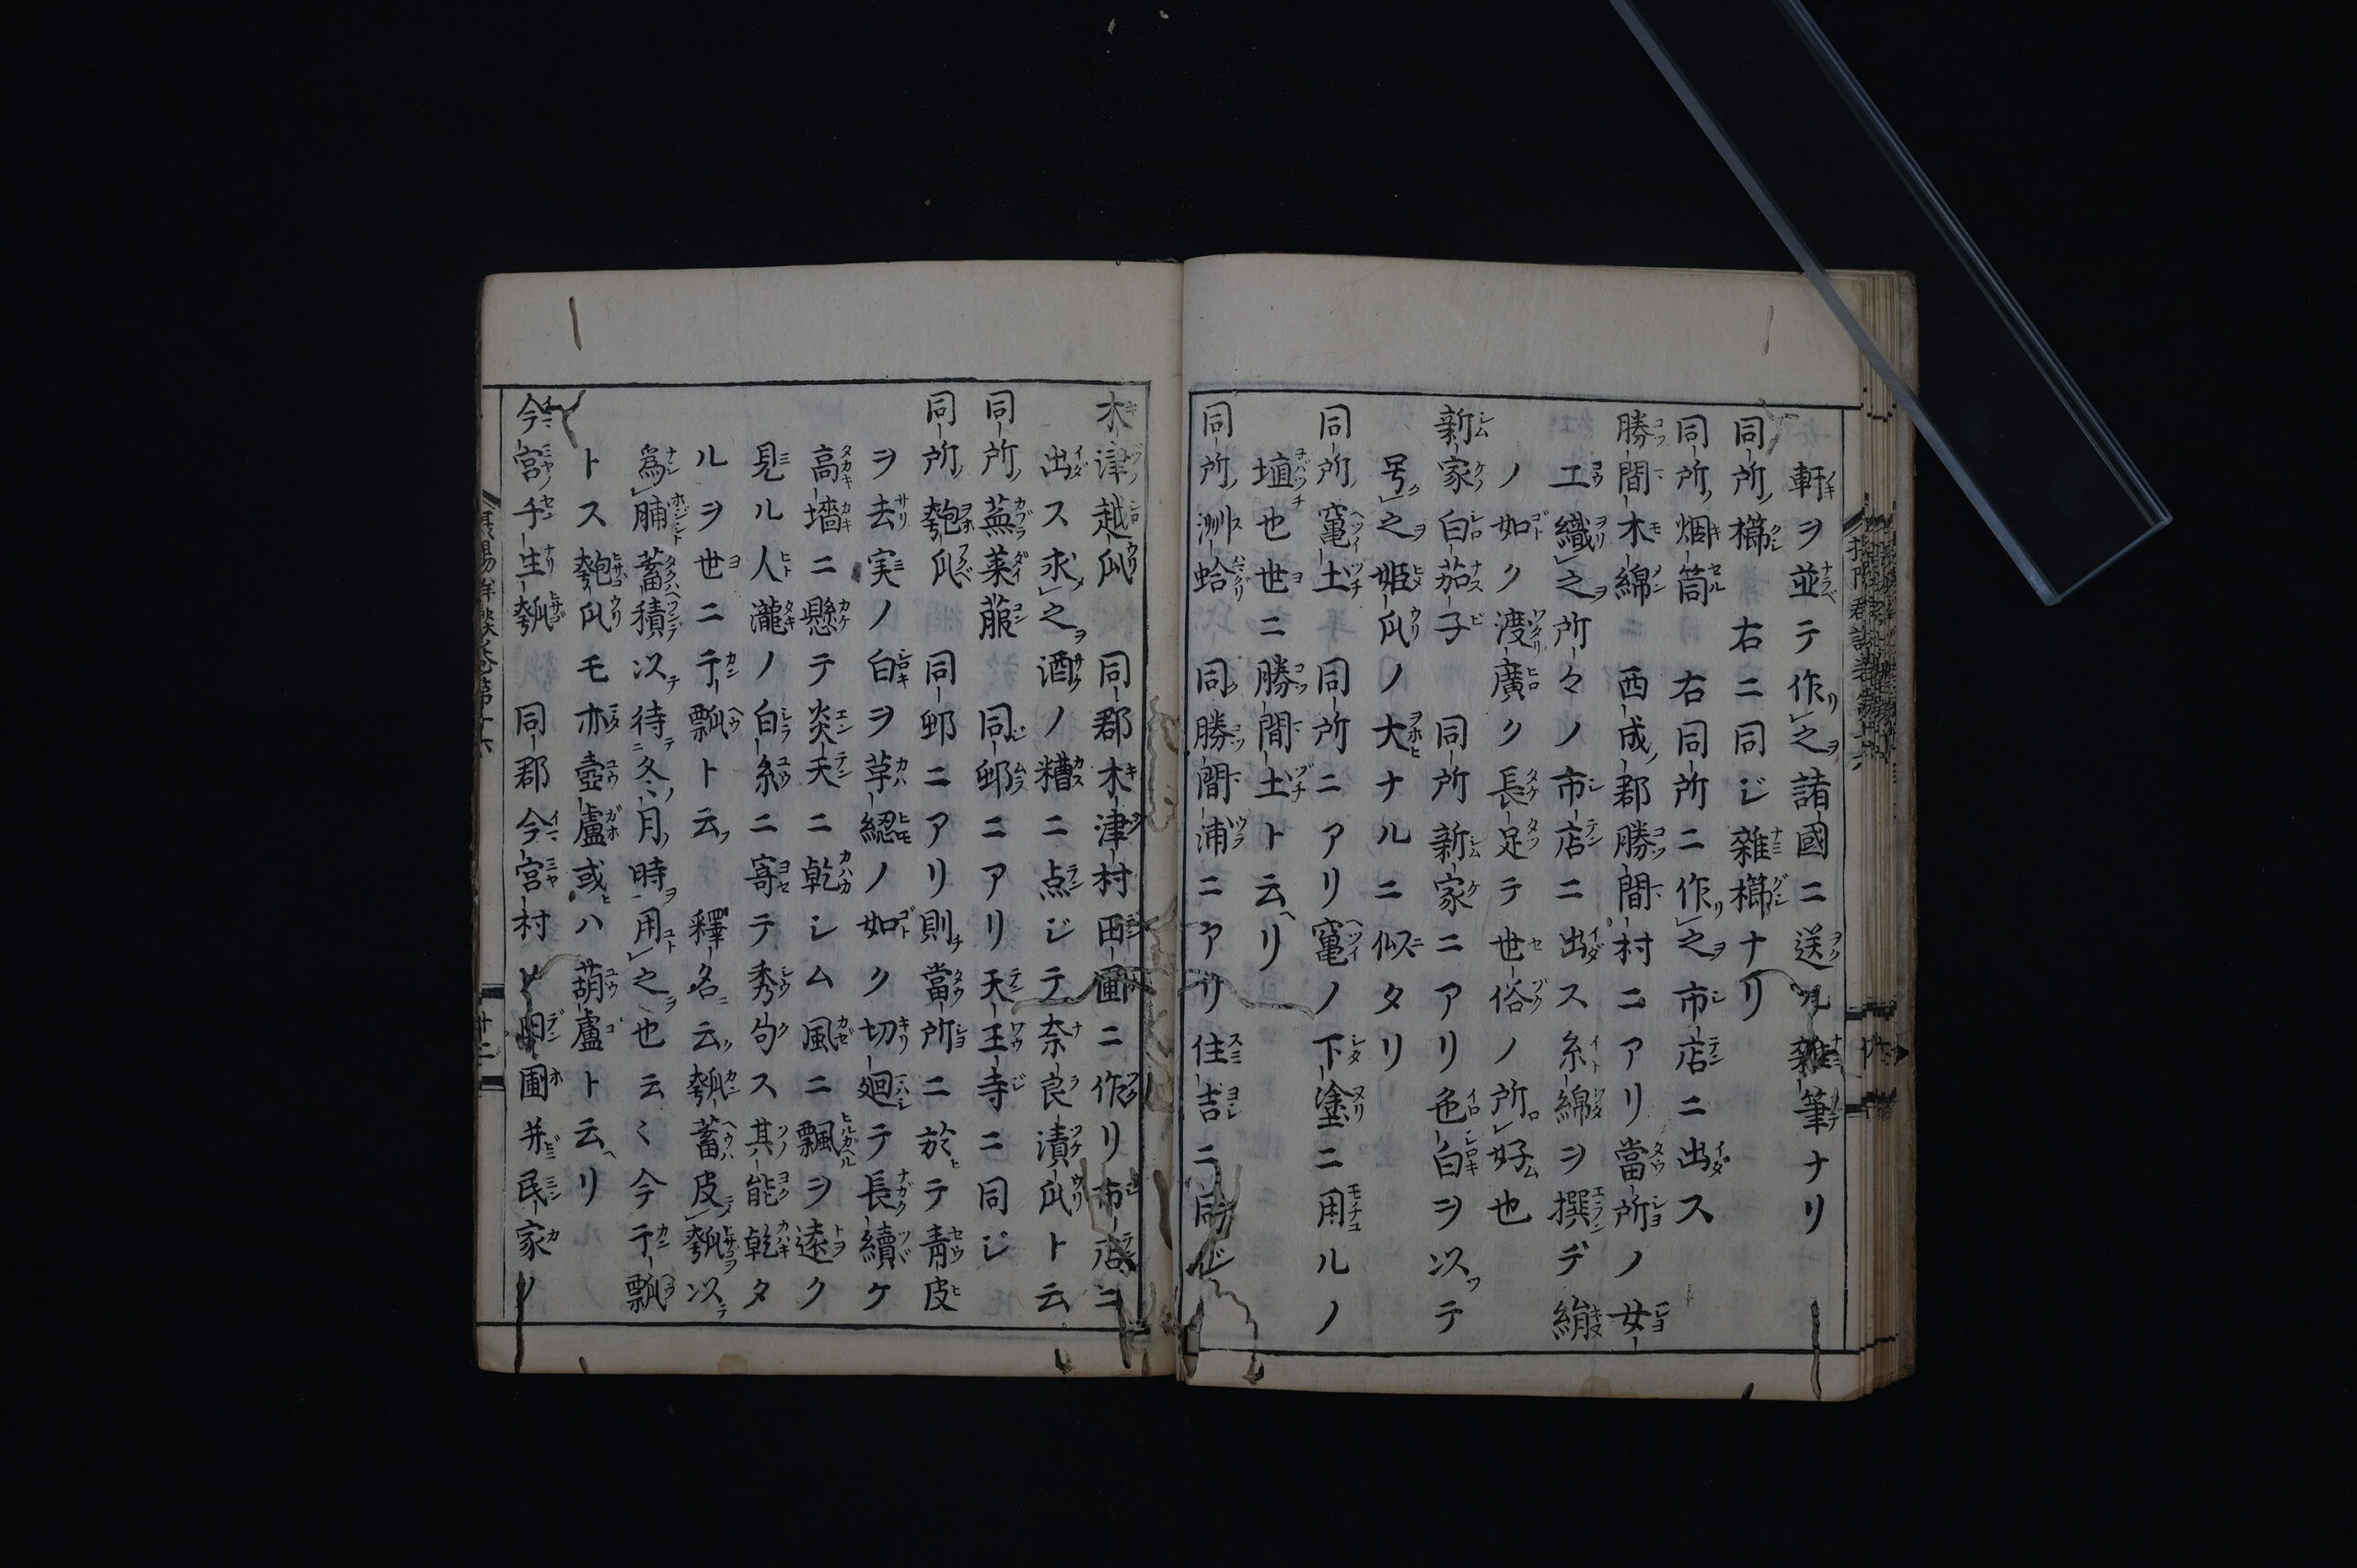 軒ヲ並テ作之諸國ニ送ル雜筆ナリ
同所櫛 右ニ同ジ雜櫛ナリ
同所烟筒 右同所ニ作之市店ニ出ス
勝間木綿 西成郡勝間村ニアリ當所ノ女
工織之所々ノ市店ニ出ス糸綿ヲ撰デ絹
ノ如ク渡廣ク長足テ世俗ノ所好也
新家白茄子 同所新家ニアリ色白ヲ以テ
号之姫瓜ノ大ナルニ似タリ
同所竃土 同所ニアリ竃ノ下塗ニ用ルノ
埴也世ニ勝間土ト云リ
同所洲蛤 同勝間浦ニアリ住吉ニ同ジ
木津越瓜 同郡木津村田圃ニ作リ市店ニ
出ス求之酒ノ糟ニ点ジテ奈良漬瓜ト云
同所蕪菜菔 同邨ニアリ天王寺ニ同ジ
同所匏瓜 同邨ニアリ則當所ニ於テ青皮
ヲ去実ノ白ヲ草綛ノ如ク切廻テ長續ケ
高墻ニ懸テ炎天ニ乾シム風ニ飄ヲ遠ク
見ル人瀧ノ白糸ニ寄テ秀句ス其能乾タ
ルヲ世ニ干瓢ト云 釋名云瓠蓄皮瓠以
為脯蓄積以待冬月時用之也云〻今干瓢
トス匏瓜モ亦壺盧或ハ葫盧ト云リ
今宮千生瓠 同郡今宮村ノ田圃并民家ノ